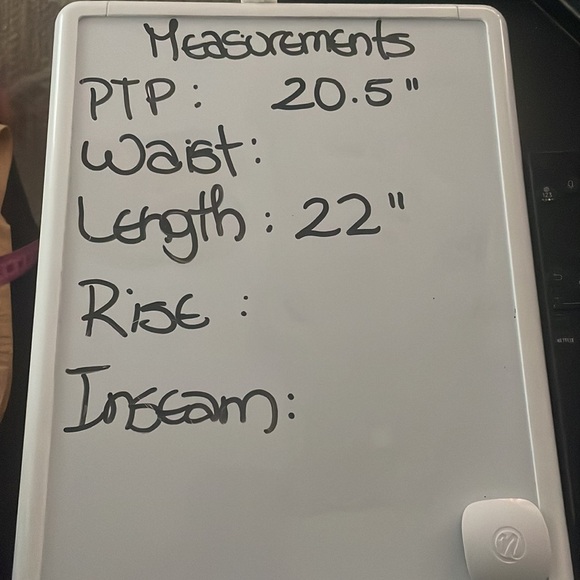 Measurements
PTP: 20.5"
Waist:
Length: 22"
Rise:
Inseam: